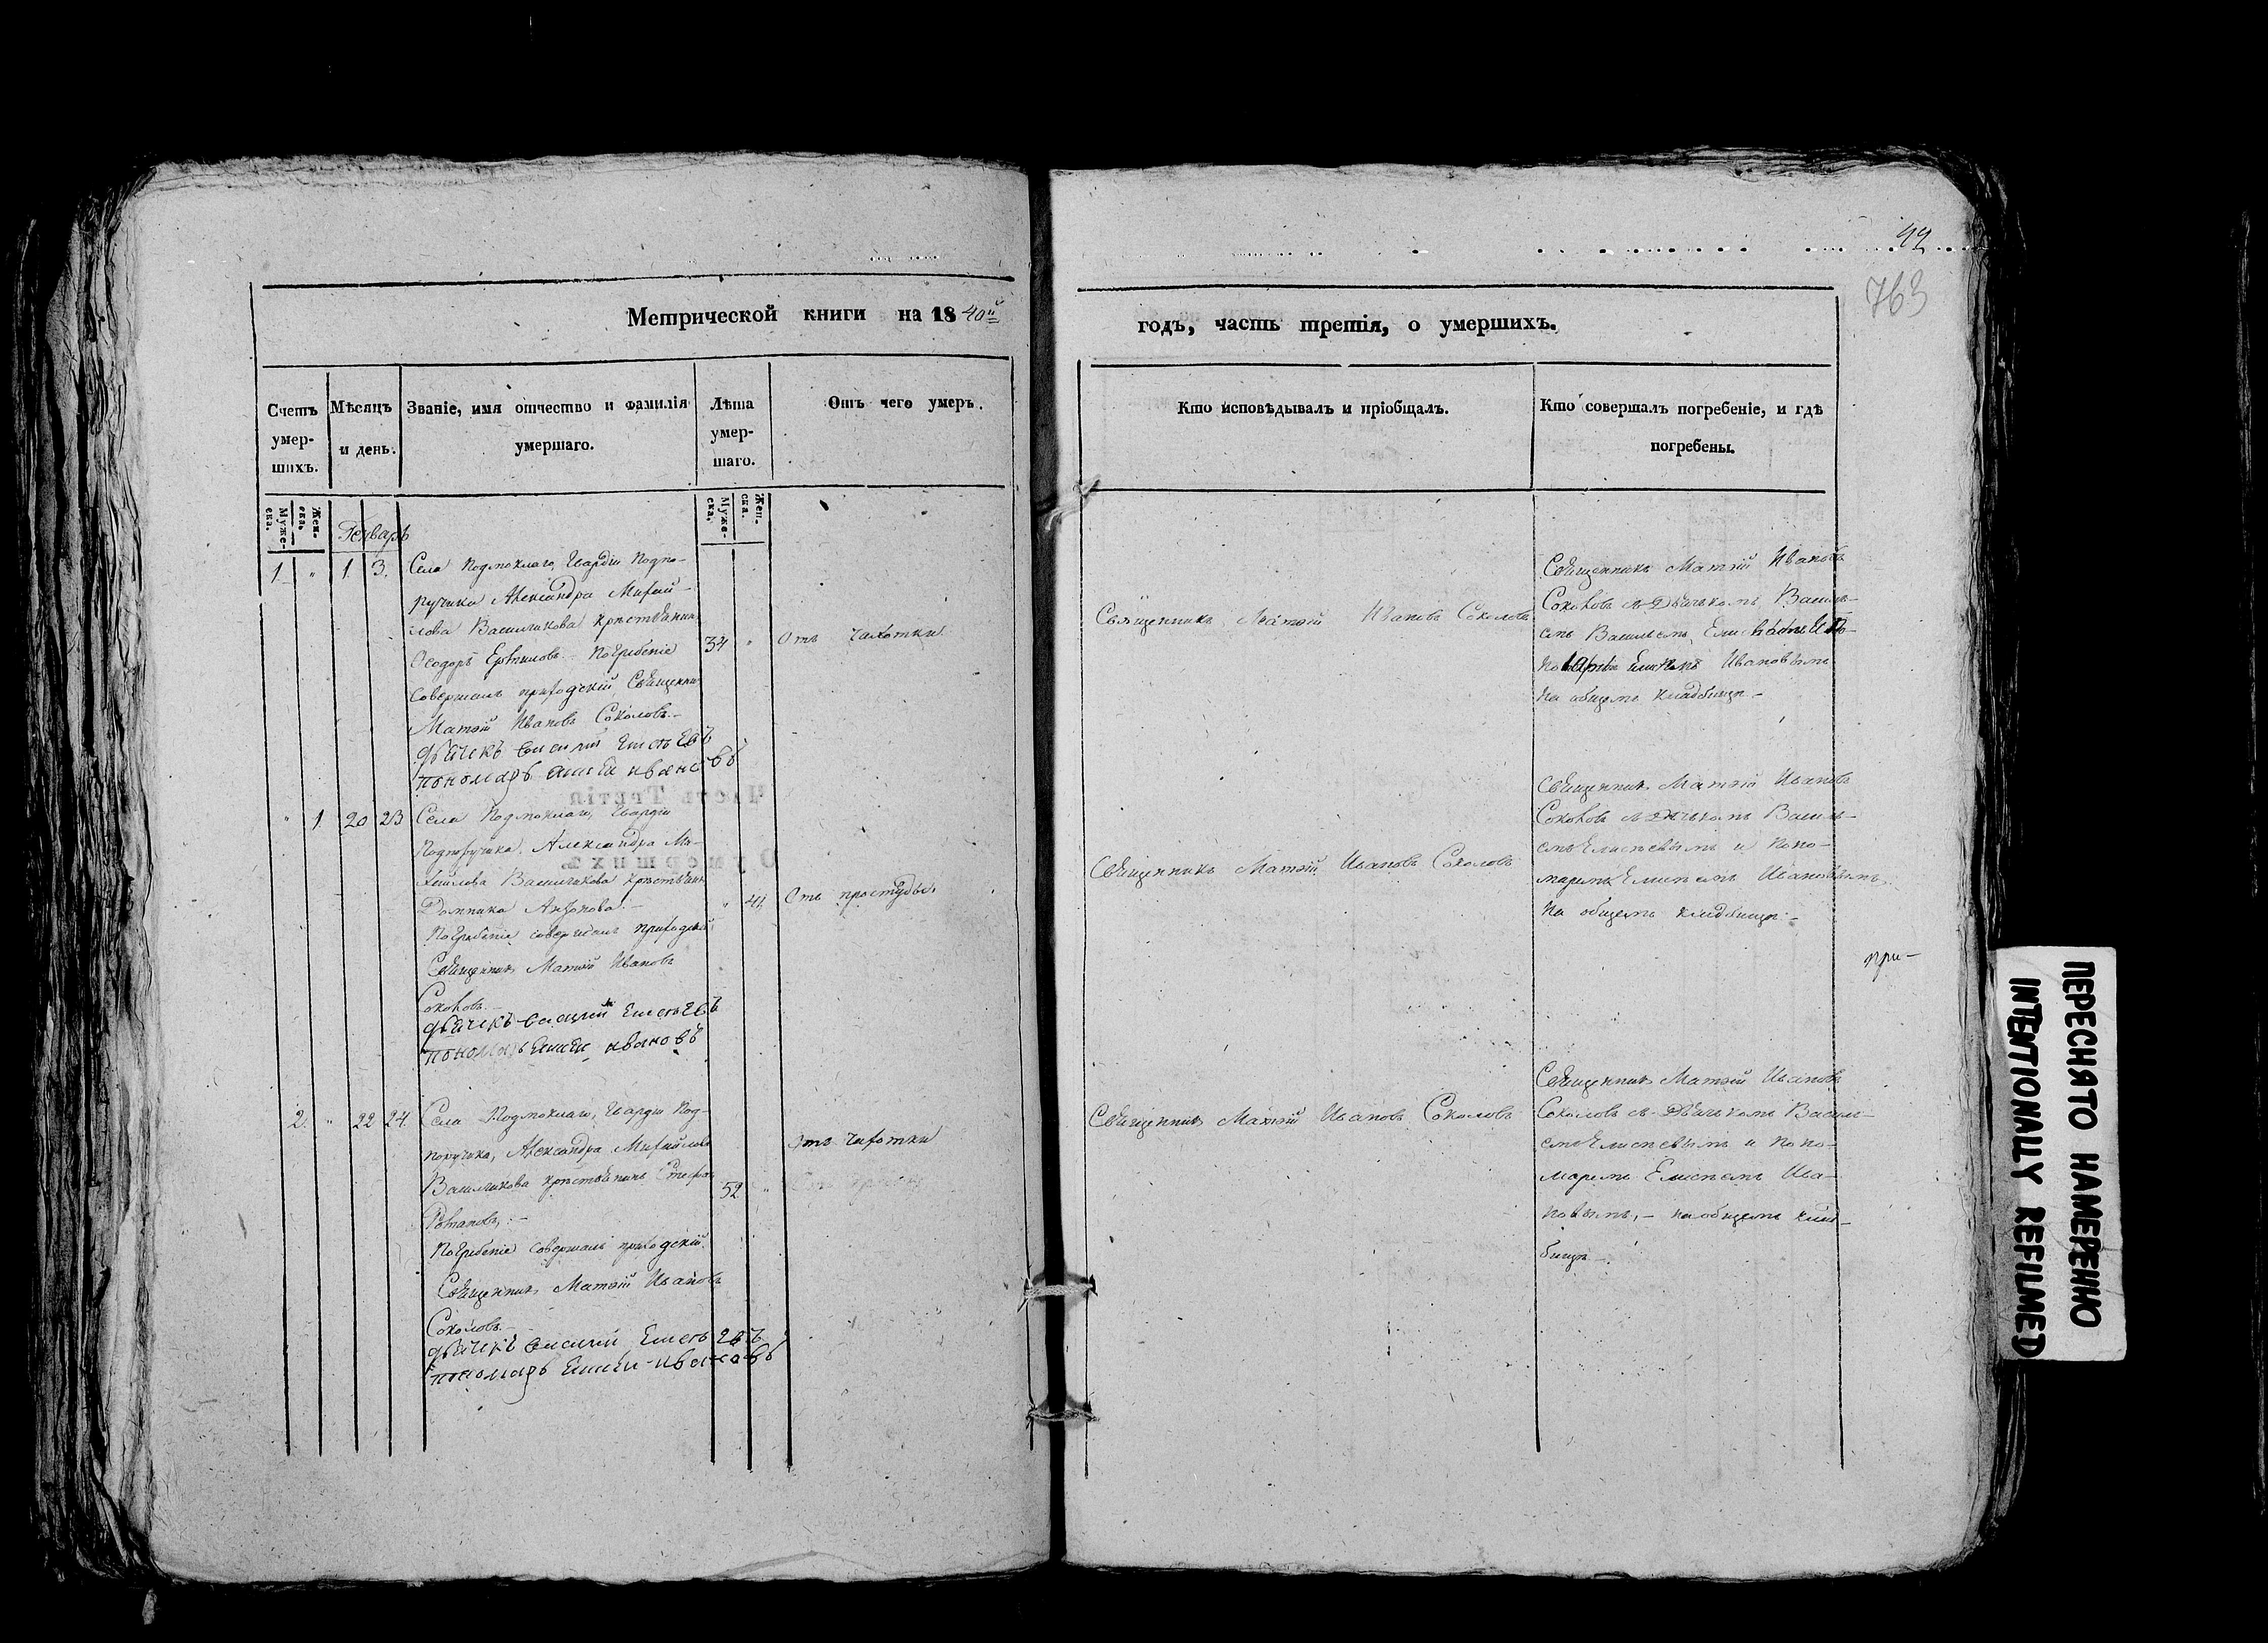 763
Метрической книги на 1840й
годъ, часть третія, о умершихъ.
Счетъ умер-шихъ.
Мѣсяцъ и день.
Званіе, имя отчество и фамилія умершаго.
Лѣта умер-шаго.
Отъ чего умеръ.
Кто исповѣдывалъ и пріобщалъ.
Кто совершалъ погребеніе, и гдѣ погребены.
Муже-ска.
Жен-ска.
Муже-ска.
Жен-ска.
Генварь
1 " 1 3.
Села Подмоклаго, Гвардіи Подпо-
ручика Александра Михай-
лова Васильчикова крестьянинъ
Ѳеодоръ Погребеніе
совершалъ приходскій Священник
Матѳій Ивановъ Соколовъ.-
дьячекъ василий Елисѣевъ
пономарь Елисѣй ивановъ
34 "
Отъ чахотки
Священникъ Матѳій Ивановъ Соколовъ
Священникъ Матѳій Ивановъ
Соколовъ съ Дьячкомъ Василь-
емъ
Ивановымъ
на общемъ кладбищѣ.-
" 1 20 23
Села Подмоклаго, Гвардіи
Подпоручика Александра Ми-
хайлова Васильчикова крестьянка
Домника Антонова.-
Погребеніе совершалъ приходскій
Священникъ Матѳій Ивановъ
Соколовъ.-
дьячекъ василий Елисѣевъ
пономарь Елисѣй ивановъ
" 41
Отъ простуды
Священникъ Матѳій Ивановъ Соколовъ
Священникъ Матѳій Ивановъ
Соколовъ съ Дьячкомъ Василь-
емъ Елисѣевымъ и Поно-
маремъ Елисѣемъ Ивановымъ
на общемъ кладбищѣ.-
при-
2. " 22 24
Села Подмоклаго, Гвардіи Под-
поручика, Александра Михайлова
Васильчикова крестьянинъ Стефанъ
Погребеніе совершалъ приходскій
Священникъ Матѳій Ивановъ
Соколовъ.-
дьячекъ василий Елисѣевъ
пономарь Елисѣй ивановъ
52 "
Отъ чахотки
Священникъ Матѳій Ивановъ Соколовъ
Священникъ Матѳій Ивановъ
Соколовъ съ Дьячкомъ Василь-
емъ Елисѣевымъ и Поно-
маремъ Елисѣемъ Ива-
новымъ,- на общемъ клад-
бищѣ.-
ПЕРЕСНЯТО НАМЕРЕННО
INTENTIONALLY REFILMED